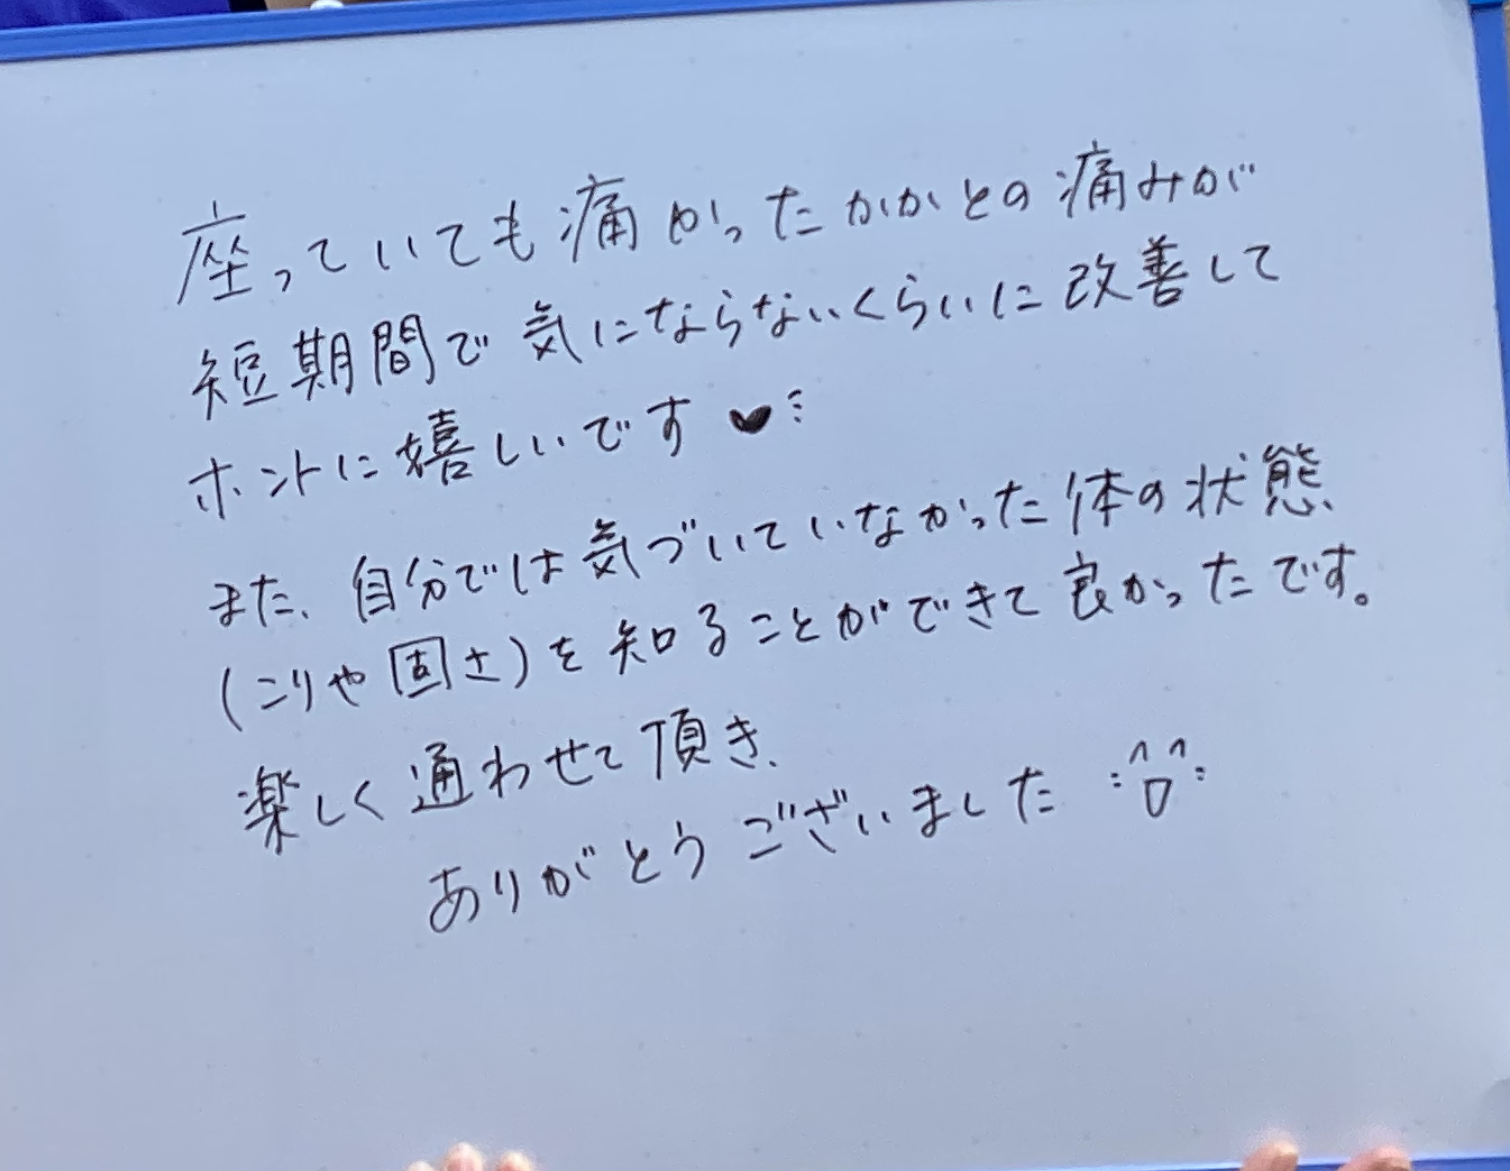 座っていても痛かったかかとの痛みが
短期間で気にならないくらいに改善して
ホントに嬉しいです♥
また、自分では気づいていなかった体の状態
(こりや固さ)を知ることができて良かったです。
楽しく通わせて頂き、
ありがとうございました